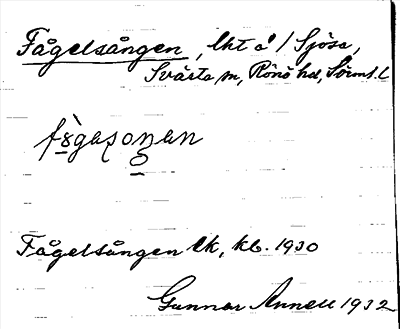 Fågelsången, lht å / Sjösa,
Svärta sn, Rönö hd, Sörml. L
Fågelsången lk, kb. 1930
Gunnar Annell 1932